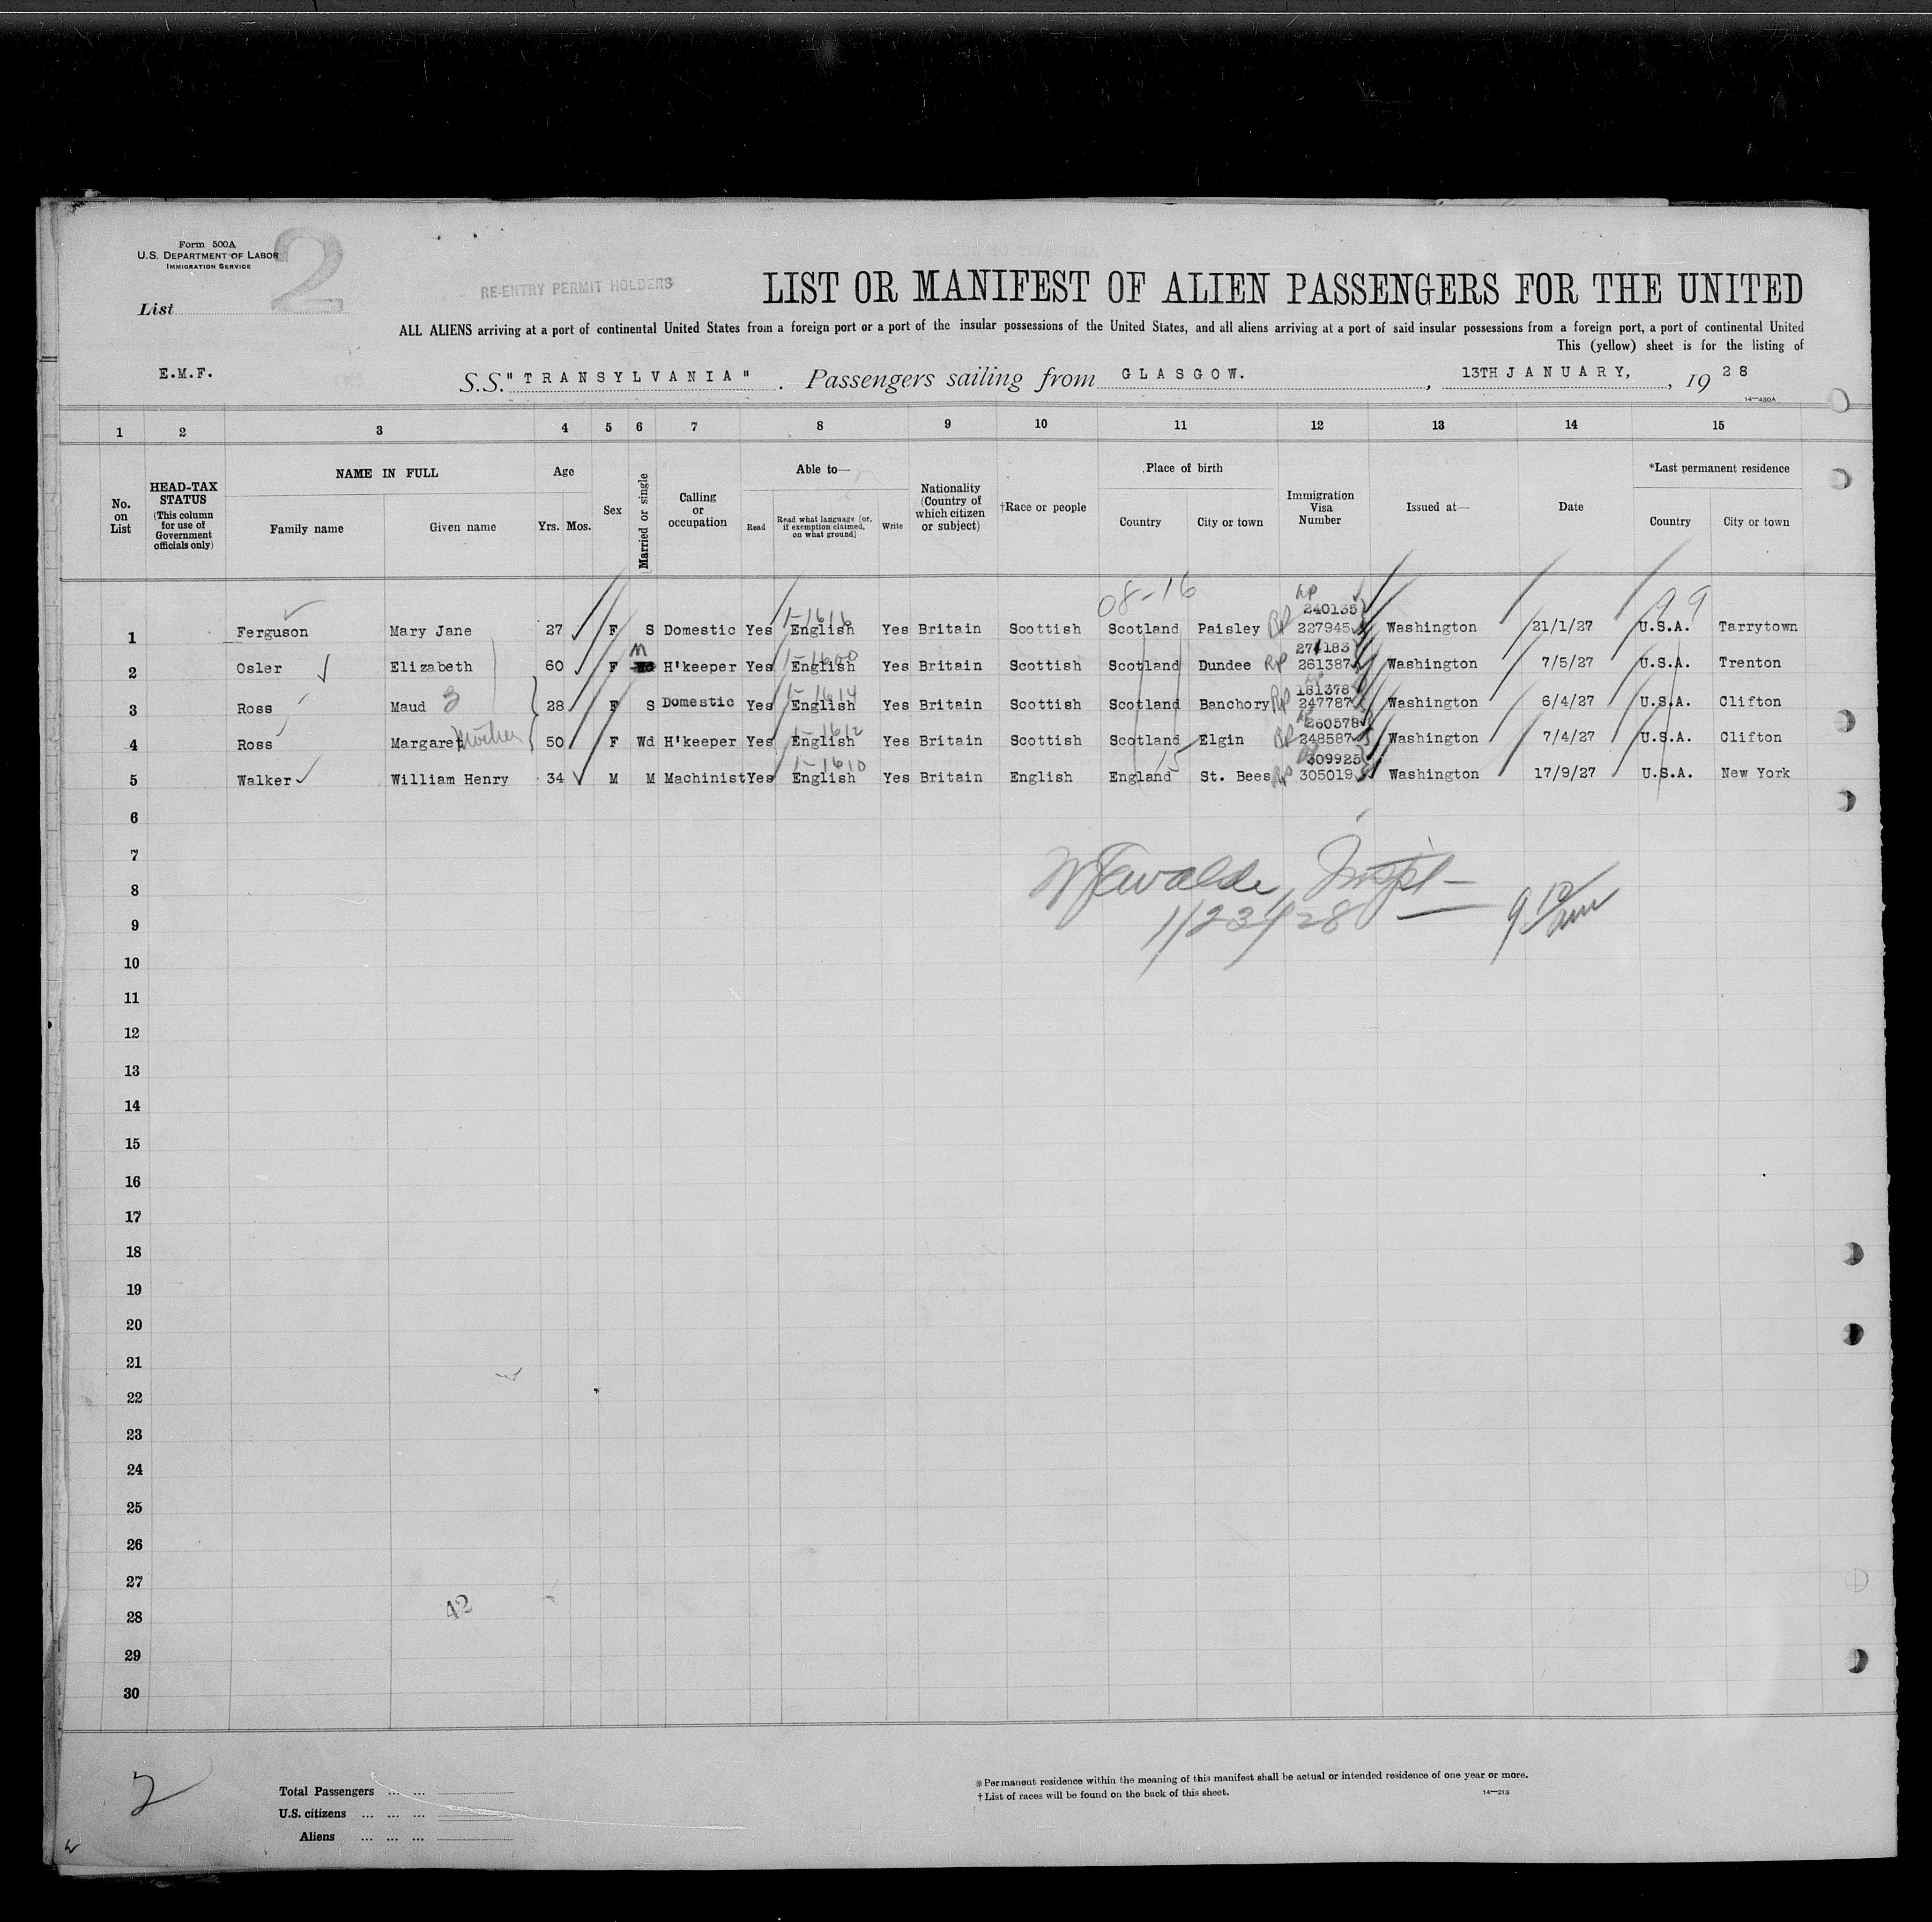 Form 500A
U.S. DEPARTMENT OF LABOR
IMMIGRATION SERVICE
2
List
RE-ENTRY PERMIT HOLDERS
LIST OR MANIFEST OF ALIEN PASSENGERS FOR THE UNITED
ALL ALIENS arriving at a port of continental United States from a foreign port or a port of the insular possessions of the United States, and all aliens arriving at a port of said insular possessions from a foreign port, a port of continental United
This (yellow) sheet is for the listing of
E.M.F.
S.S. "TRANSYLVANIA". Passengers sailing from GLASGOW., 13TH JANUARY, 1928
14—430A
1 2 3 4 5 6 7 8 9 10 11 12 13 14 15
No. on List
HEAD-TAX STATUS (This column for use of Government officials only)
NAME IN FULL
Family name Given name
Age
Yrs. Mos.
Sex
Married or single
Calling or occupation
Able to—
Read
Read what language [or, if exemption claimed, on what ground]
Write
Nationality (Country of which citizen or subject)
†Race or people
Place of birth
Country City or town
Immigration Visa Number
Issued at—
Date
*Last permanent residence
Country City or town
08-16
99
RP 240135
1 Ferguson Mary Jane 27 F S Domestic Yes English Yes Britain Scottish Scotland Paisley RP 227945 Washington 21/1/27 U.S.A. Tarrytown
M 1-1600 271183
2 Osler Elizabeth 60 F Wd H'keeper Yes English Yes Britain Scottish Scotland Dundee RP 261387 Washington 7/5/27 U.S.A. Trenton
1-1614 181378
3 Ross Maud 3 28 F S Domestic Yes English Yes Britain Scottish Scotland Banchory RP 247787 Washington 6/4/27 U.S.A. Clifton
1-1612 260578
4 Ross Margaret Mother 50 F Wd H'keeper Yes English Yes Britain Scottish Scotland Elgin RP 248587 Washington 7/4/27 U.S.A. Clifton
1-1610 15 309925
5 Walker William Henry 34 M M Machinist Yes English Yes Britain English England St. Bees RP 305019 Washington 17/9/27 U.S.A. New York
6
7
8
1/23/28
9
10
11
12
13
14
15
16
17
18
19
20
21
22
23
24
25
26
27
42
28
29
30
2
Total Passengers ... ...
U.S. citizens ... ... ...
Aliens ... ... ...
*Permanent residence within the meaning of this manifest shall be actual or intended residence of one year or more.
†List of races will be found on the back of this sheet.
14—213